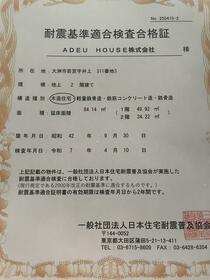 No 200415-2
耐震基準適合検査合格証
ADEU HOUSE株式会社 様
所 在 地 大洲市若宮字井上 311番地3
規 模 地上 2 階建て
構 造 種 別 木造住宅・軽量鉄骨造・鉄筋コンクリート造・鉄骨造
面 積 延床面積 84.14 ㎡ 1階 49.92 ㎡
2階 34.22 ㎡
建 築 時 期 昭和 42 年 9 月 30 日
検 査 時 期 令和 7 年 4 月 10 日
上記記載の物件は、一般社団法人日本住宅耐震普及協会が実施する
耐震基準適合検査に合格しております。
(現行規定である2000年改正の耐震基準に適合しているものです。)
耐震基準適合証明書の有効期限は検査年月日より2年間です。
一般社団法人日本住宅耐震普及協会
〒144-0052
東京都大田区蒲田5-21-13-411
TEL 03-6715-8609 FAX 03-6428-6354